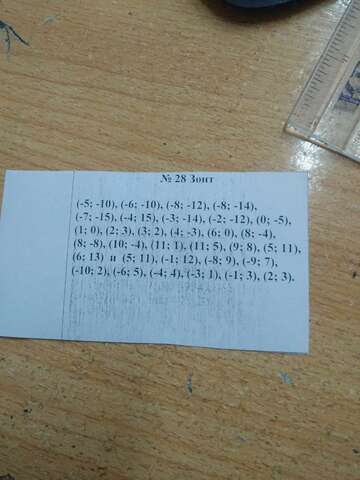 № 28 Зонт
(-5; -10), (-6; -10), (-8; -12), (-8; -14),
(-7; -15), (-4; 15), (-3; -14), (-2; -12), (0; -5),
(1; 0), (2; 3), (3; 2), (4; -3), (6; 0), (8; -4),
(8; -8), (10; -4), (11; 1), (11; 5), (9; 8), (5; 11),
(6; 13) и (5; 11), (-1; 12), (-8; 9), (-9; 7),
(-10; 2), (-6; 5), (-4; 4), (-3; 1), (-1; 3), (2; 3).